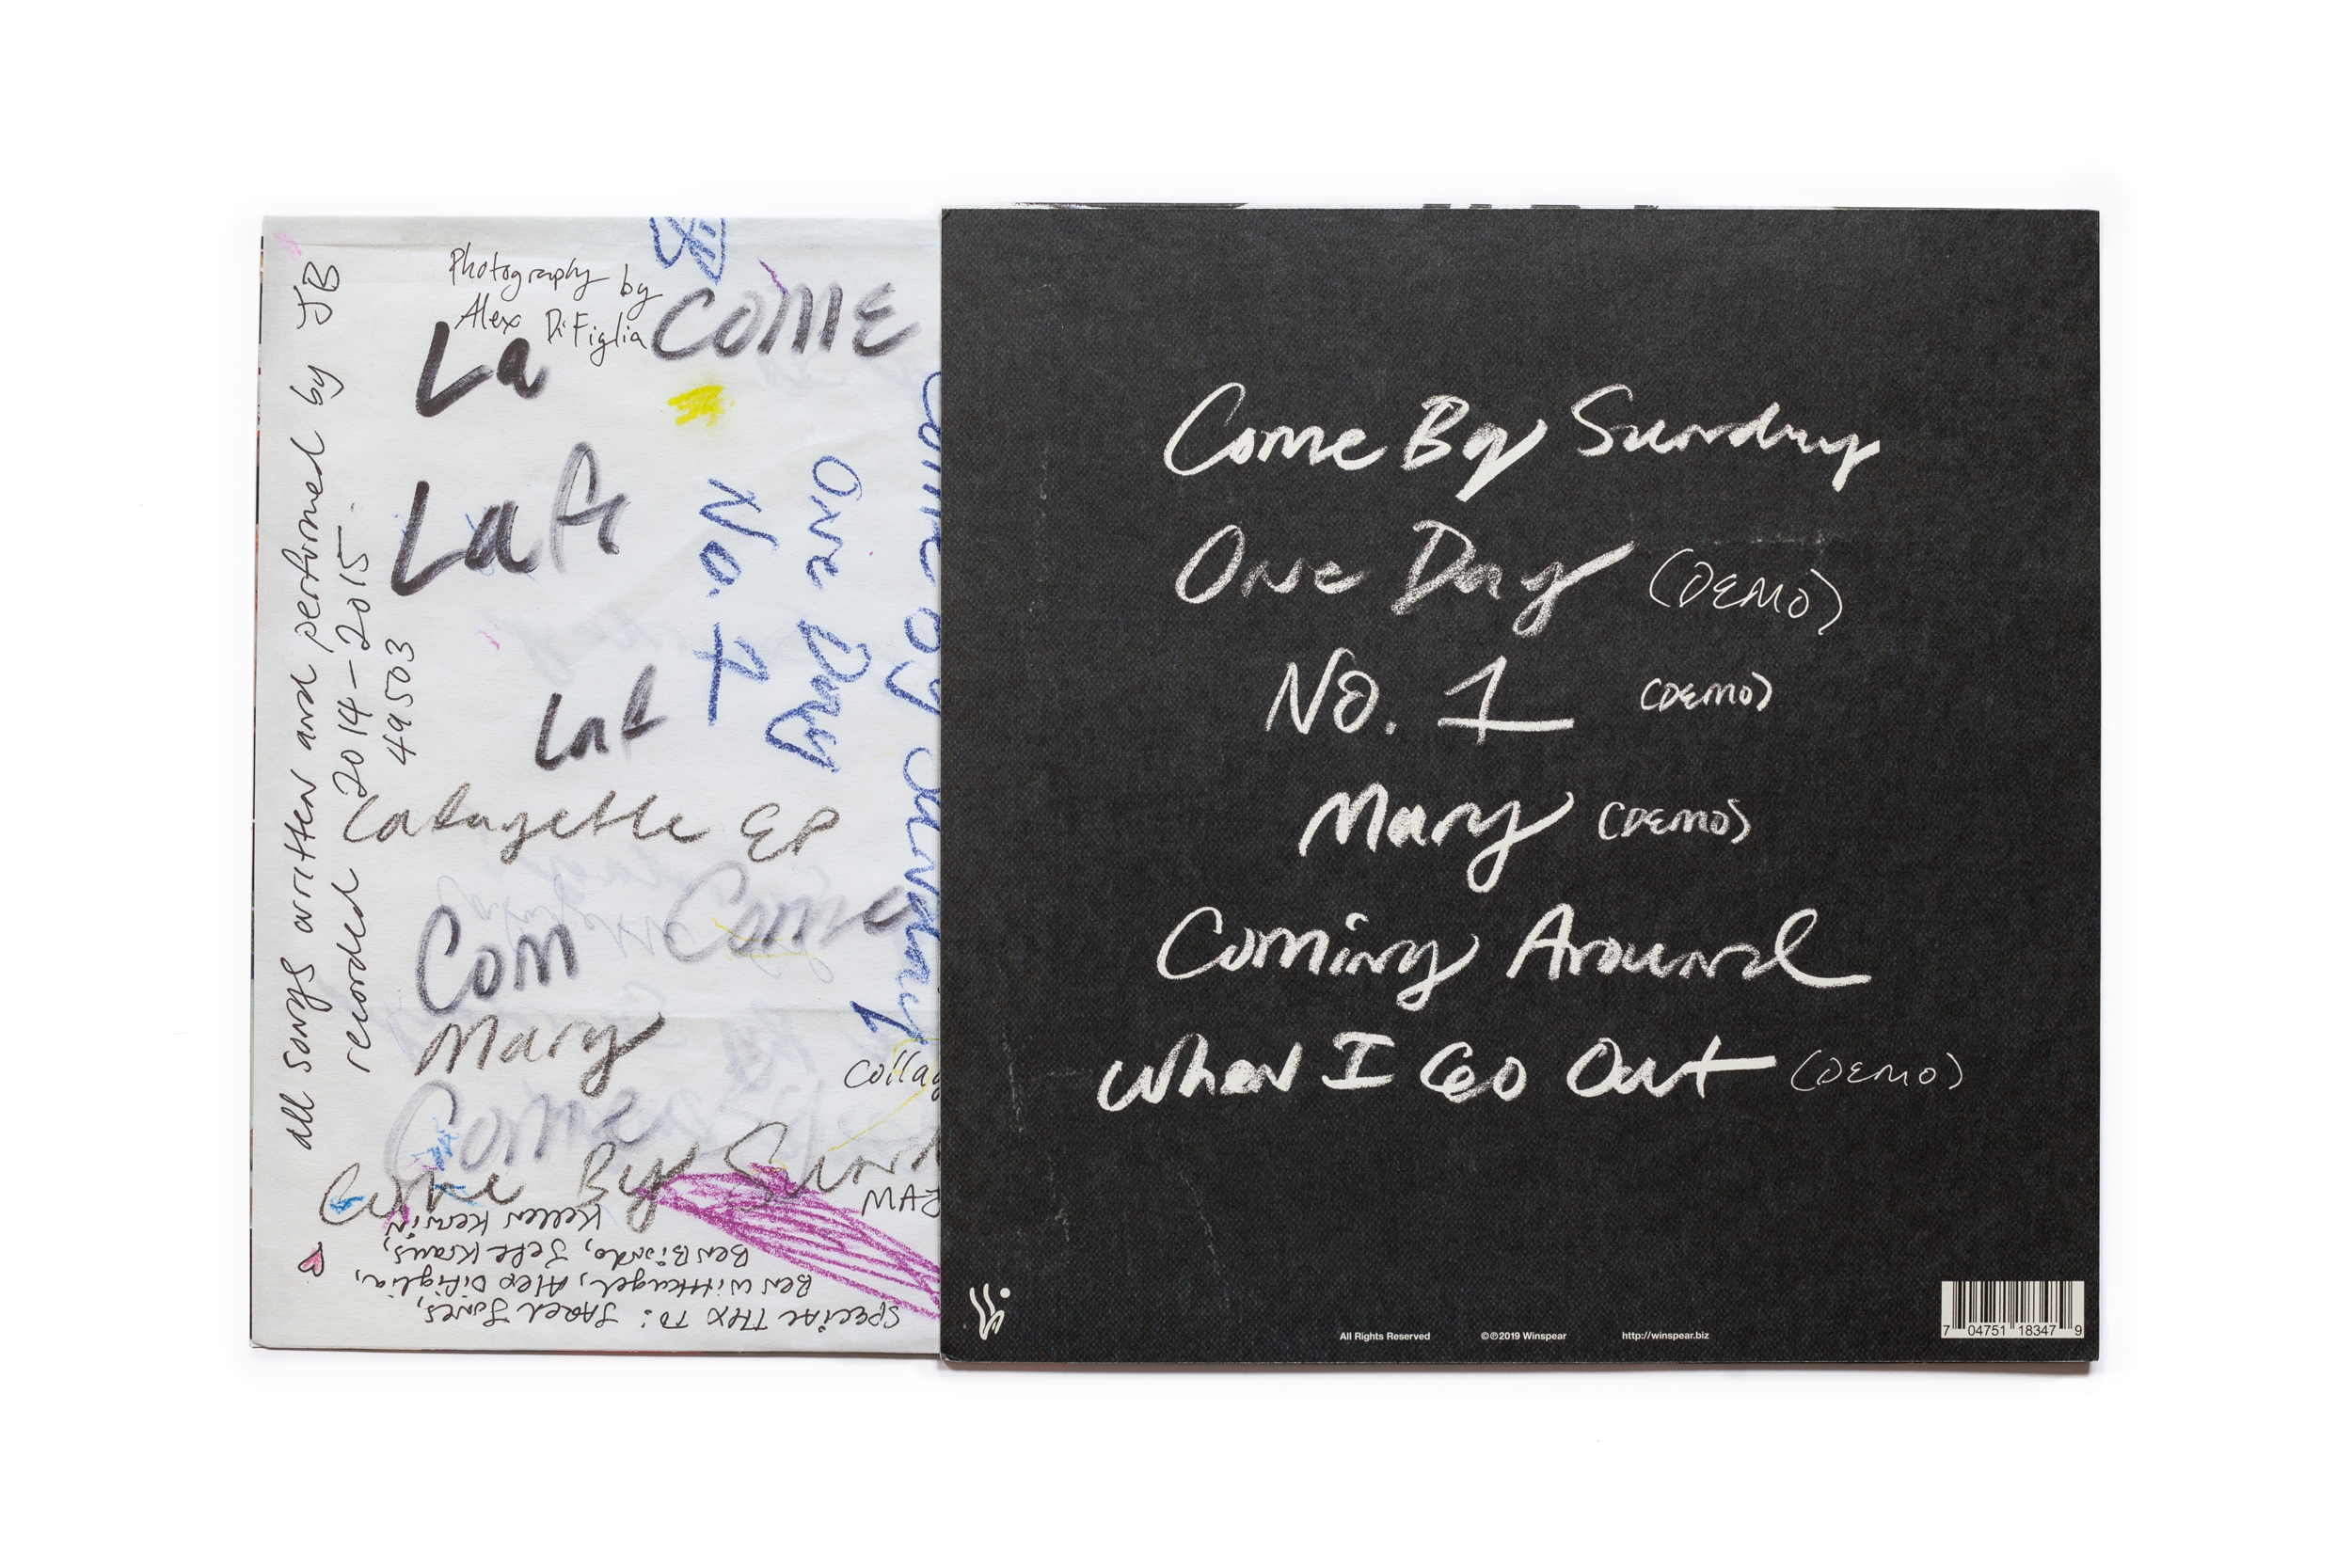 Photography by
Alex DiFiglia
La
COME
Laf
Laf
Lafayette EP
Com
Come
Mary
Come
Come By Sund
Collag
MAJ
all songs written and performed by JB
recorded 2014-2015.
49503
No. 1
One Day
Come By Sunday
SPECIAL THX TO: JARED JONES,
Ben Wittkugel, Alex DiFiglia,
Ben Biondo, Jeff Kraus,
Kellen Kerwin
Come By Sunday
One Day (DEMO)
No. 1 (DEMO)
Mary (DEMO)
Coming Around
When I Go Out (DEMO)
All Rights Reserved ©℗2019 Winspear http://winspear.biz
7 04751 18347 9